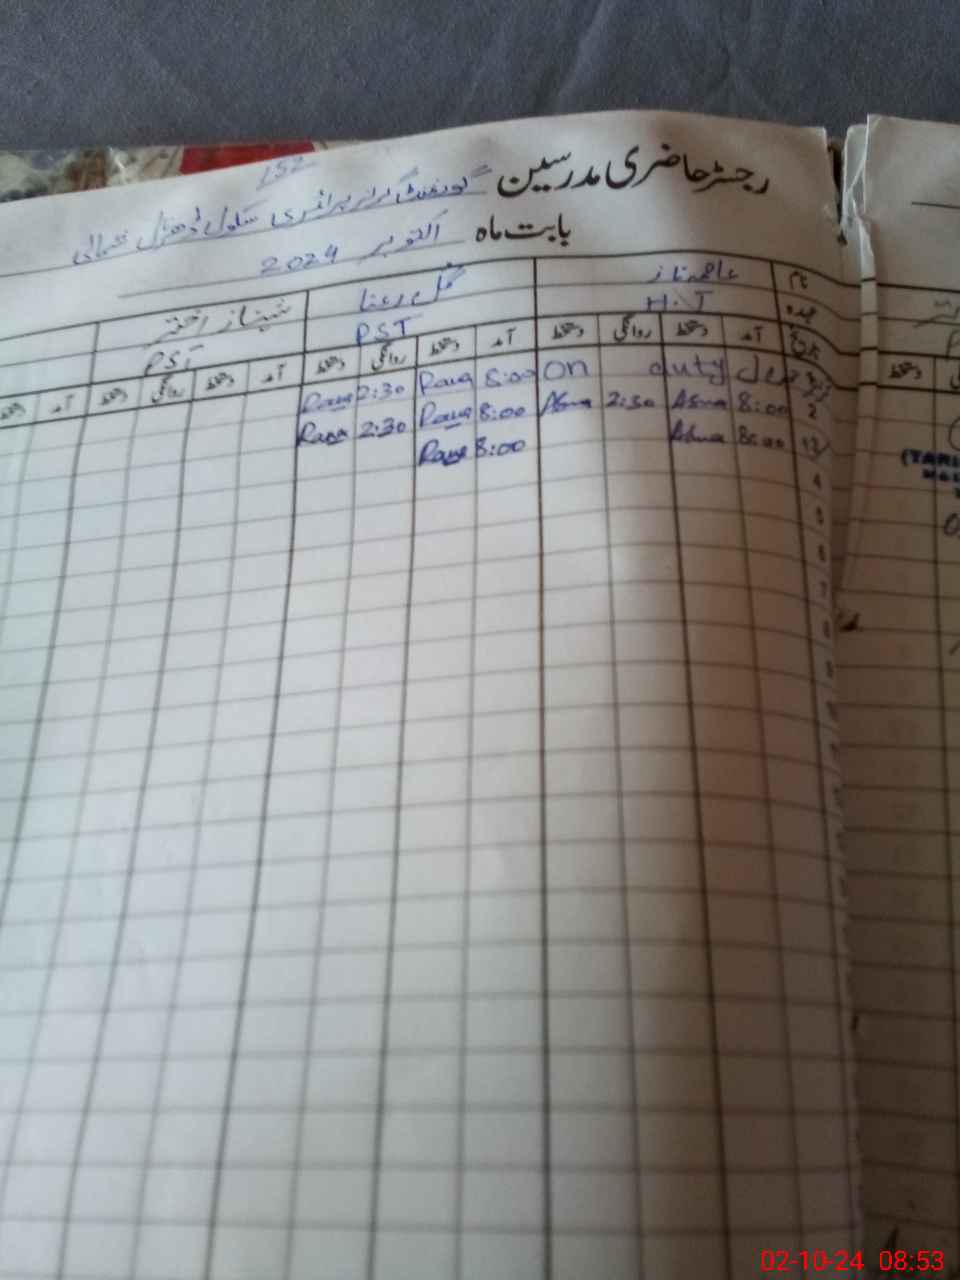 152
رجسٹر حاضری مدرسین گورنمنٹ گرلز پرائمری سکول
بابت ماہ اکتوبر 2024
نام عاصمہ ناز گل رعنا شہناز اختر
عہدہ H.T PST PST
تاریخ آمد دستخط روانگی دستخط آمد دستخط روانگی دستخط آمد دستخط روانگی دستخط آمد دستخط
duty on 8:00 Rana 2:30 Rana
2 8:00 Asma 2:30 Asma 8:00 Rana 2:30 Rana
3 8:00 Asma 8:00 Rana
4
5
6
7
8
9
10
(TARI
02-10-24 08:53